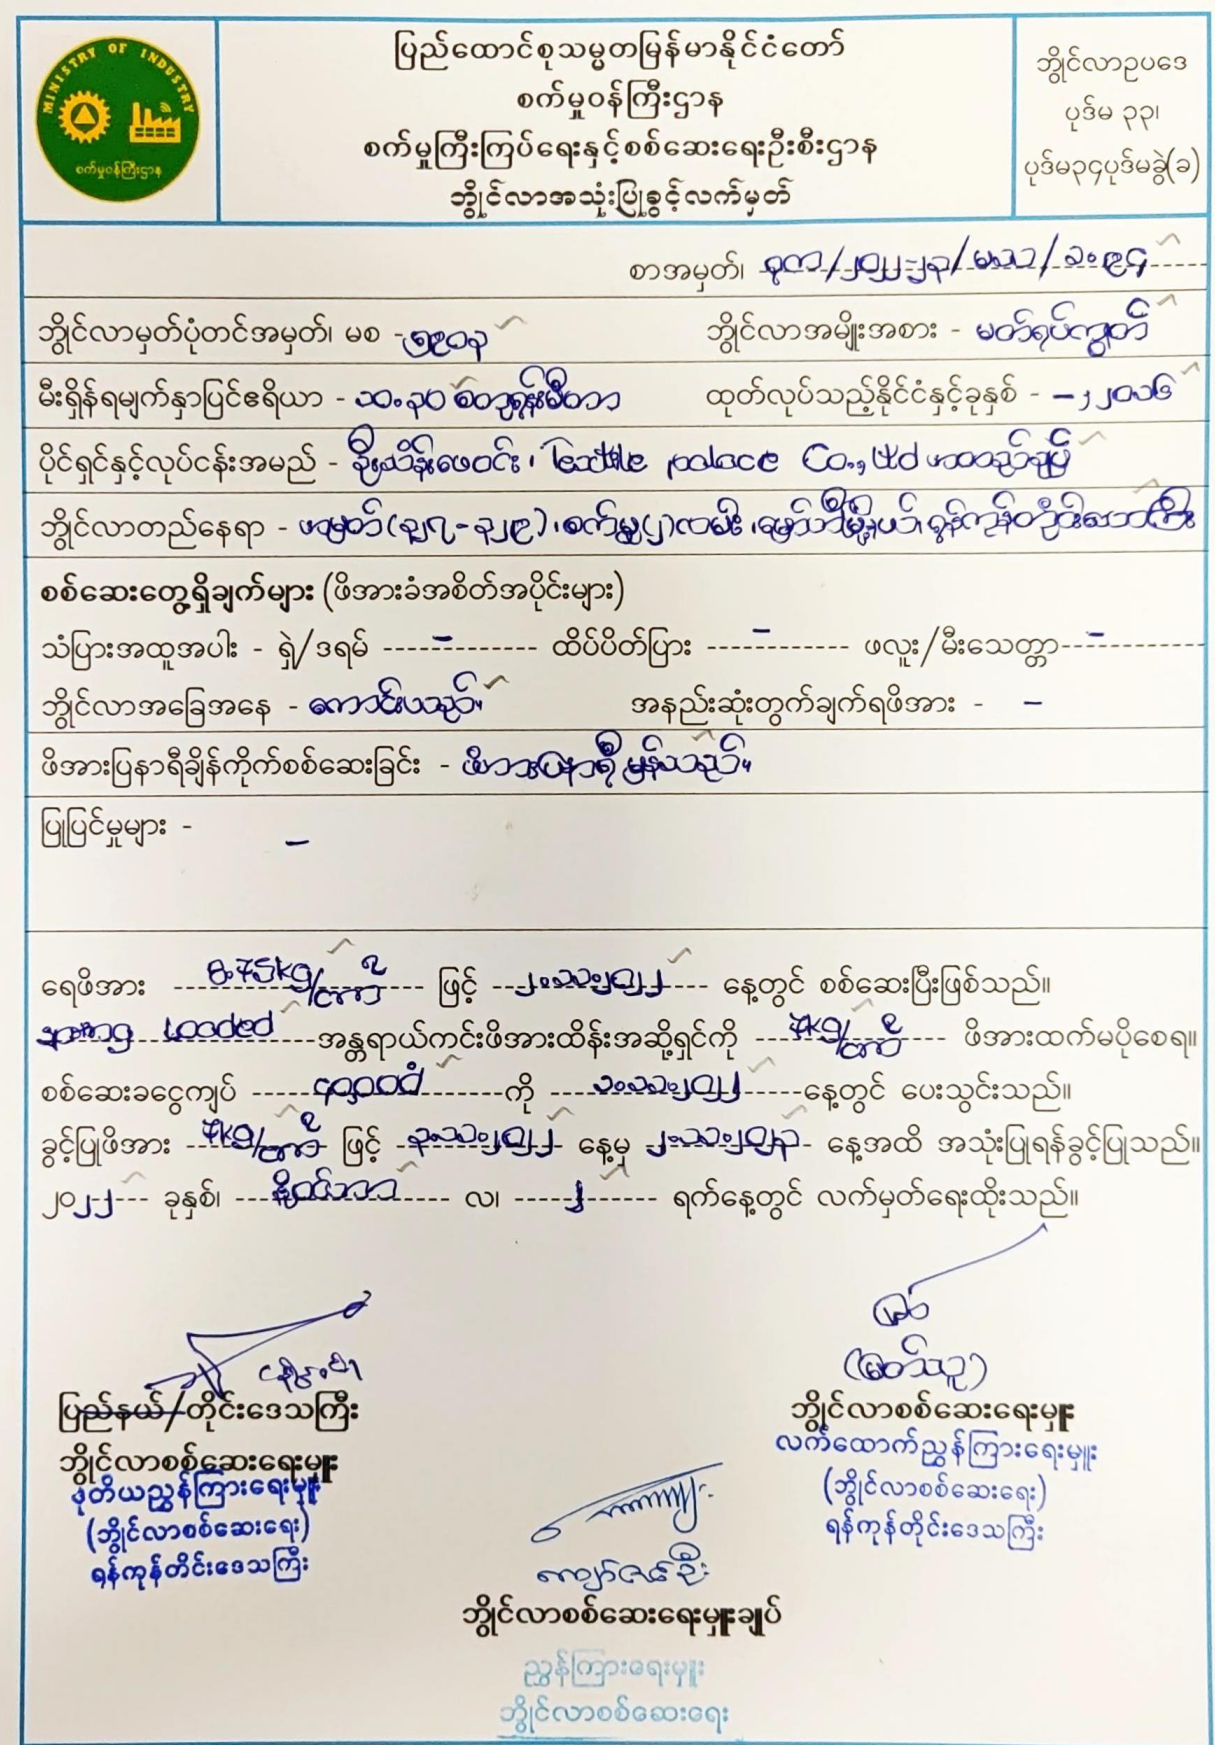 MINISTRY OF INDUSTRY
စက်မှုဝန်ကြီးဌာန
ပြည်ထောင်စုသမ္မတမြန်မာနိုင်ငံတော်
စက်မှုဝန်ကြီးဌာန
စက်မှုကြီးကြပ်ရေးနှင့်စစ်ဆေးရေးဦးစီးဌာန
ဘွိုင်လာအသုံးပြုခွင့်လက်မှတ်
ဘွိုင်လာဥပဒေ
ပုဒ်မ ၃၃၊
ပုဒ်မ၃၄ပုဒ်မခွဲ(ခ)
စာအမှတ်၊
ဘွိုင်လာမှတ်ပုံတင်အမှတ်၊ မစ - ဘွိုင်လာအမျိုးအစား - မတ်ရပ်ကျွတ်
မီးရှိန်ရမျက်နှာပြင်ဧရိယာ - ၁၁.၃၀ စတုရန်းမီတာ ထုတ်လုပ်သည့်နိုင်ငံနှင့်ခုနှစ် - -၊ ၂၀၁၆
ပိုင်ရှင်နှင့်လုပ်ငန်းအမည် - ဦးသိန်းဖေဝင်း ၊ Textile palace Co., Ltd အထည်ချုပ်
ဘွိုင်လာတည်နေရာ - အမှတ်(၃၂၇-၃၂၉)၊ စက်မှု(၂)လမ်း၊ မှော်ဘီမြို့နယ်၊ ရန်ကုန်တိုင်းဒေသကြီး
စစ်ဆေးတွေ့ရှိချက်များ (ဖိအားခံအစိတ်အပိုင်းများ)
သံပြားအထူအပါး - ရှဲ/ဒရမ် - ထိပ်ပိတ်ပြား - ဖလူး/မီးသေတ္တာ -
ဘွိုင်လာအခြေအနေ - ကောင်းသည်။ အနည်းဆုံးတွက်ချက်ရဖိအား - -
ဖိအားပြနာရီချိန်ကိုက်စစ်ဆေးခြင်း - ဖိအားပြနာရီ မှန်သည်။
ပြုပြင်မှုများ - -
ရေဖိအား 8.75kg/cm² ဖြင့် ၂.၁၁.၂၀၂၂ နေ့တွင် စစ်ဆေးပြီးဖြစ်သည်။
spring Loaded အန္တရာယ်ကင်းဖိအားထိန်းအဆို့ရှင်ကို 7kg/cm² ဖိအားထက်မပိုစေရ။
စစ်ဆေးခငွေကျပ် ကို ၂၀၂၂ နေ့တွင် ပေးသွင်းသည်။
ခွင့်ပြုဖိအား 7kg/cm² ဖြင့် ၃.၁၁.၂၀၂၂ နေ့မှ ၂.၁၁.၂၀၂၃ နေ့အထိ အသုံးပြုရန်ခွင့်ပြုသည်။
၂၀၂၂ ခုနှစ်၊ နိုဝင်ဘာ လ၊ ရက်နေ့တွင် လက်မှတ်ရေးထိုးသည်။
ပြည်နယ်/တိုင်းဒေသကြီး
ဘွိုင်လာစစ်ဆေးရေးမှူး
ဒုတိယညွှန်ကြားရေးမှူး
(ဘွိုင်လာစစ်ဆေးရေး)
ရန်ကုန်တိုင်းဒေသကြီး
ဘွိုင်လာစစ်ဆေးရေးမှူး
လက်ထောက်ညွှန်ကြားရေးမှူး
(ဘွိုင်လာစစ်ဆေးရေး)
ရန်ကုန်တိုင်းဒေသကြီး
ကျော်ဇင်ဦး
ဘွိုင်လာစစ်ဆေးရေးမှူးချုပ်
ညွှန်ကြားရေးမှူး
ဘွိုင်လာစစ်ဆေးရေး